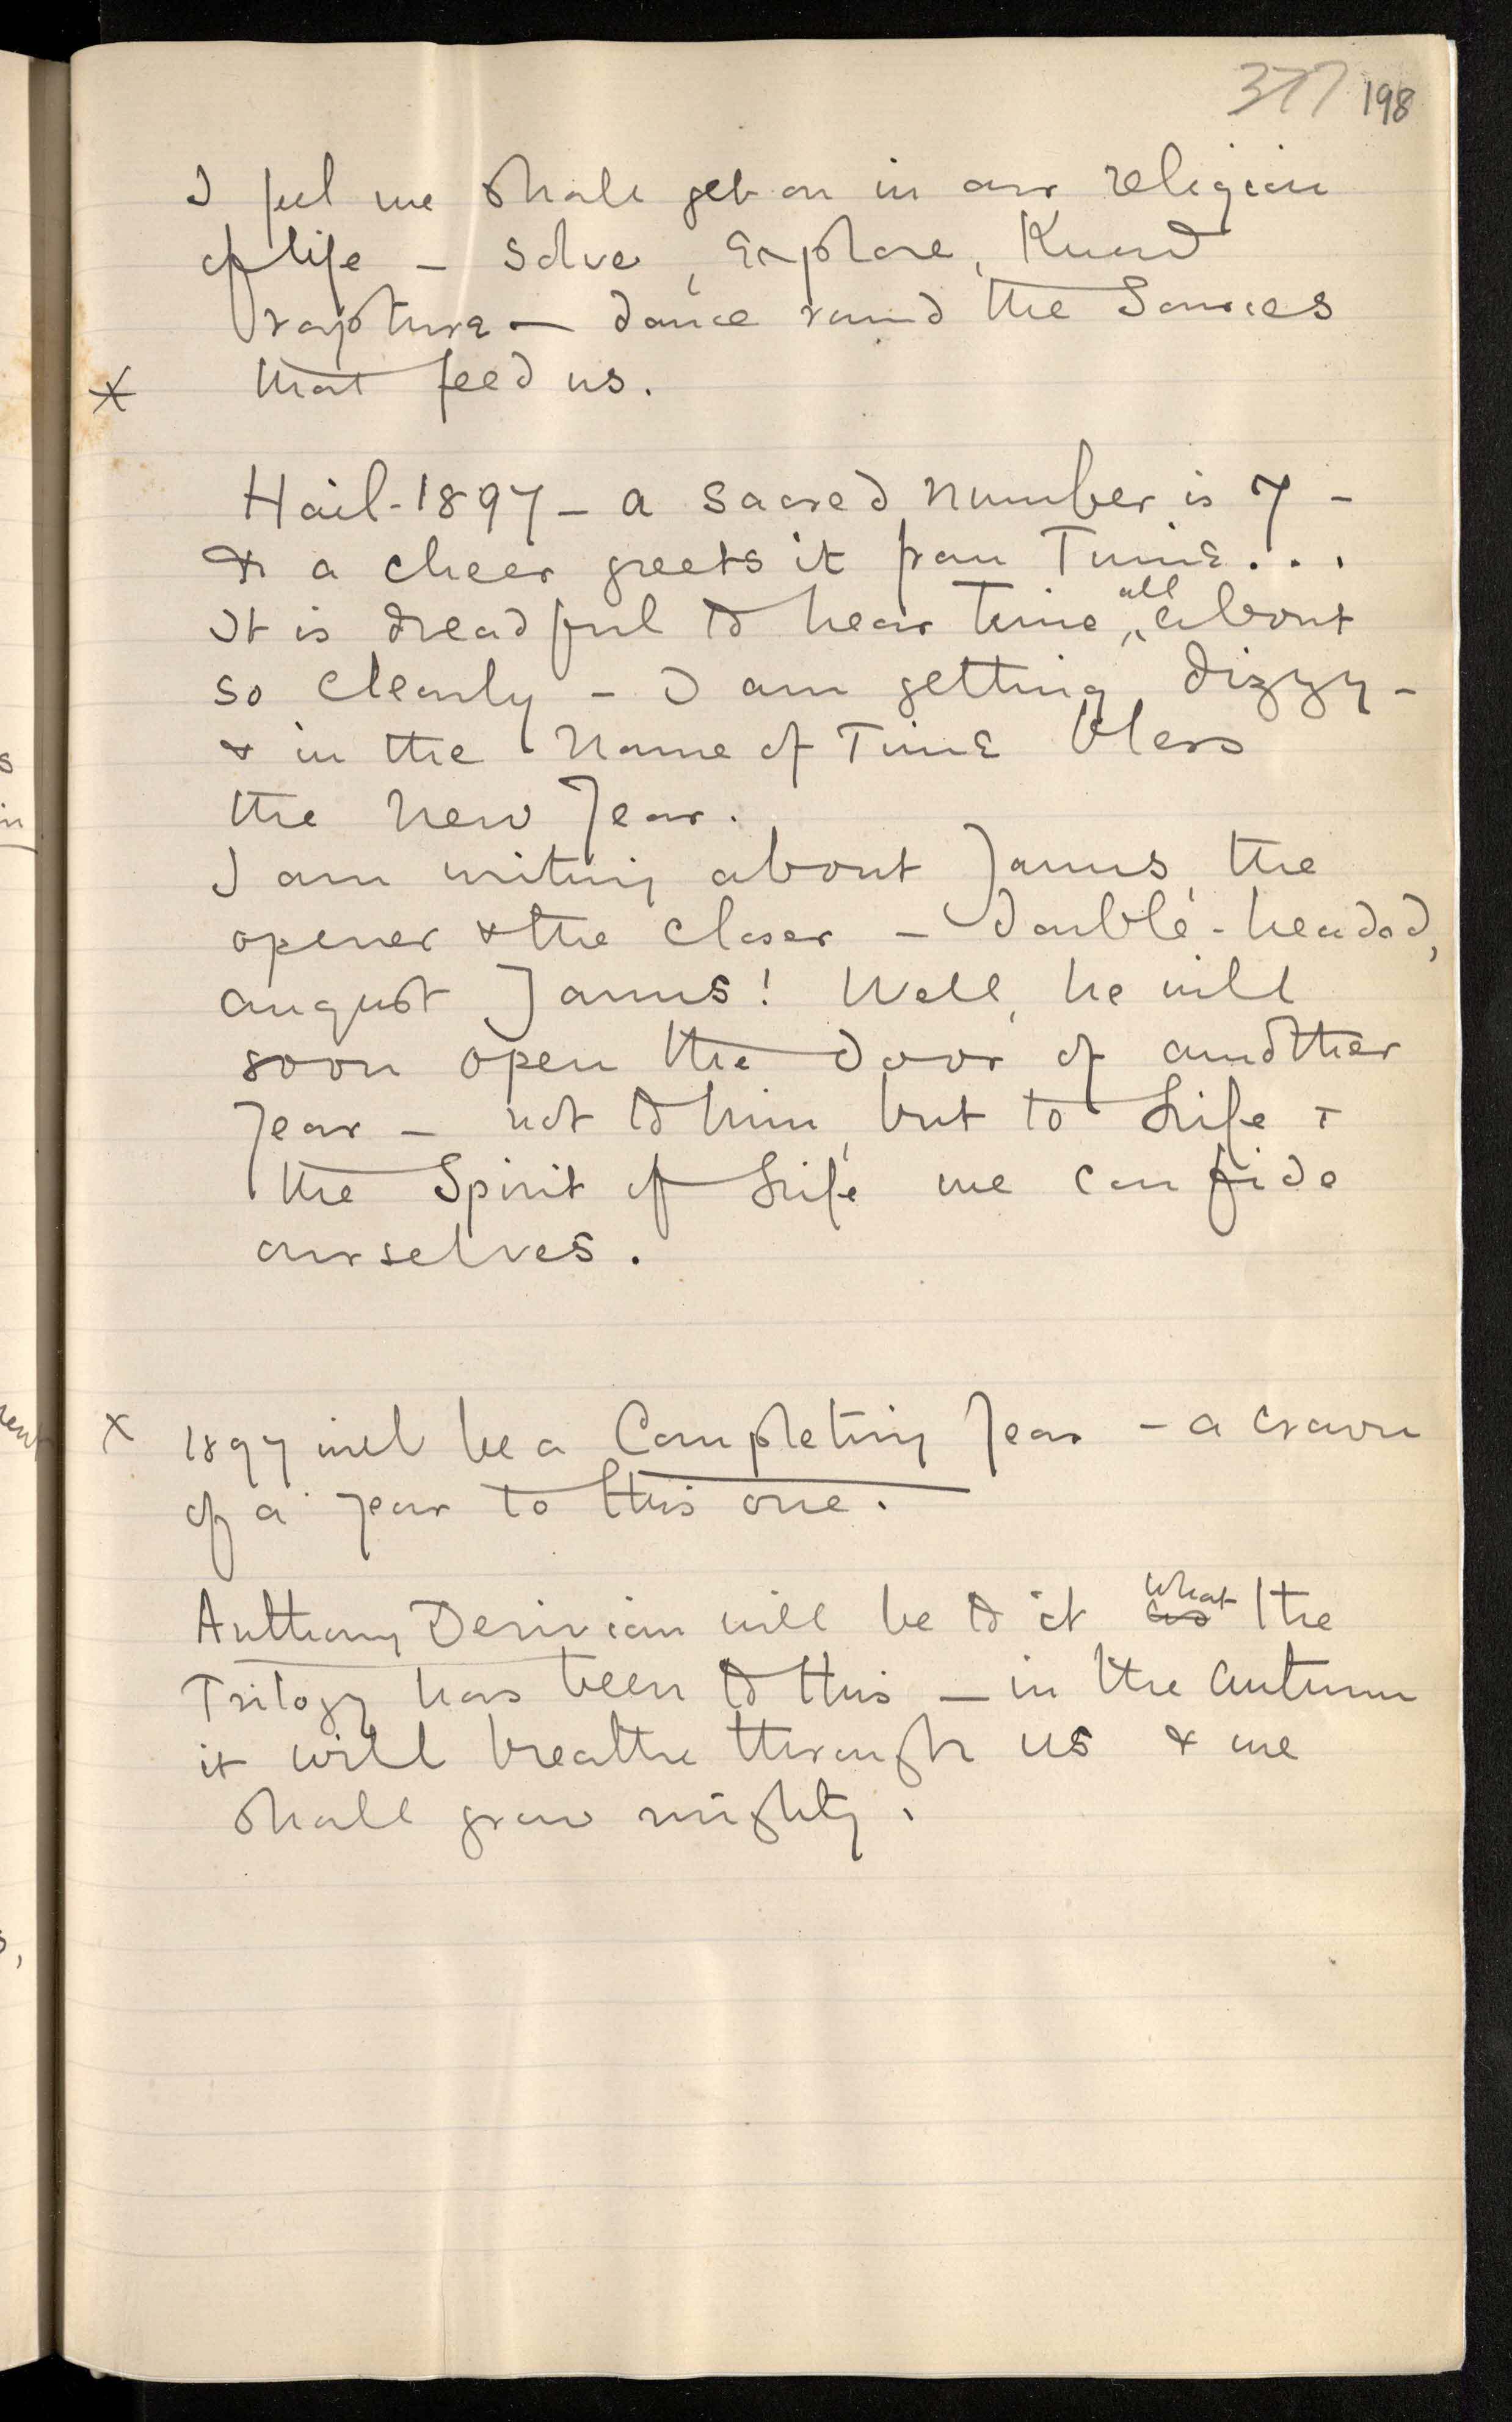 377 198
I feel we shall get on in our religion
of life – solve, explore, Kund
rapture – dance round the Sources
that feed us.
Hail - 1897 – a sacred number is 7 –
& a cheer greets it from Time...
It is dreadful to hear time all about
so clearly – I am getting dizzy –
& in the name of Time bless
the New Year.
I am writing about Janus, the
opener & the closer – double-headed,
august Janus! Well, he will
soon open the door of another
Year – not to him, but to Life &
the Spirit of Life we confide
ourselves.
x 1897 will be a Completing Year – a crown
of a year to this one.
Anthony Derivian will be to it as what the
Trilogy has been to this – in the Autumn
it will breathe through us & we
shall grow mighty.